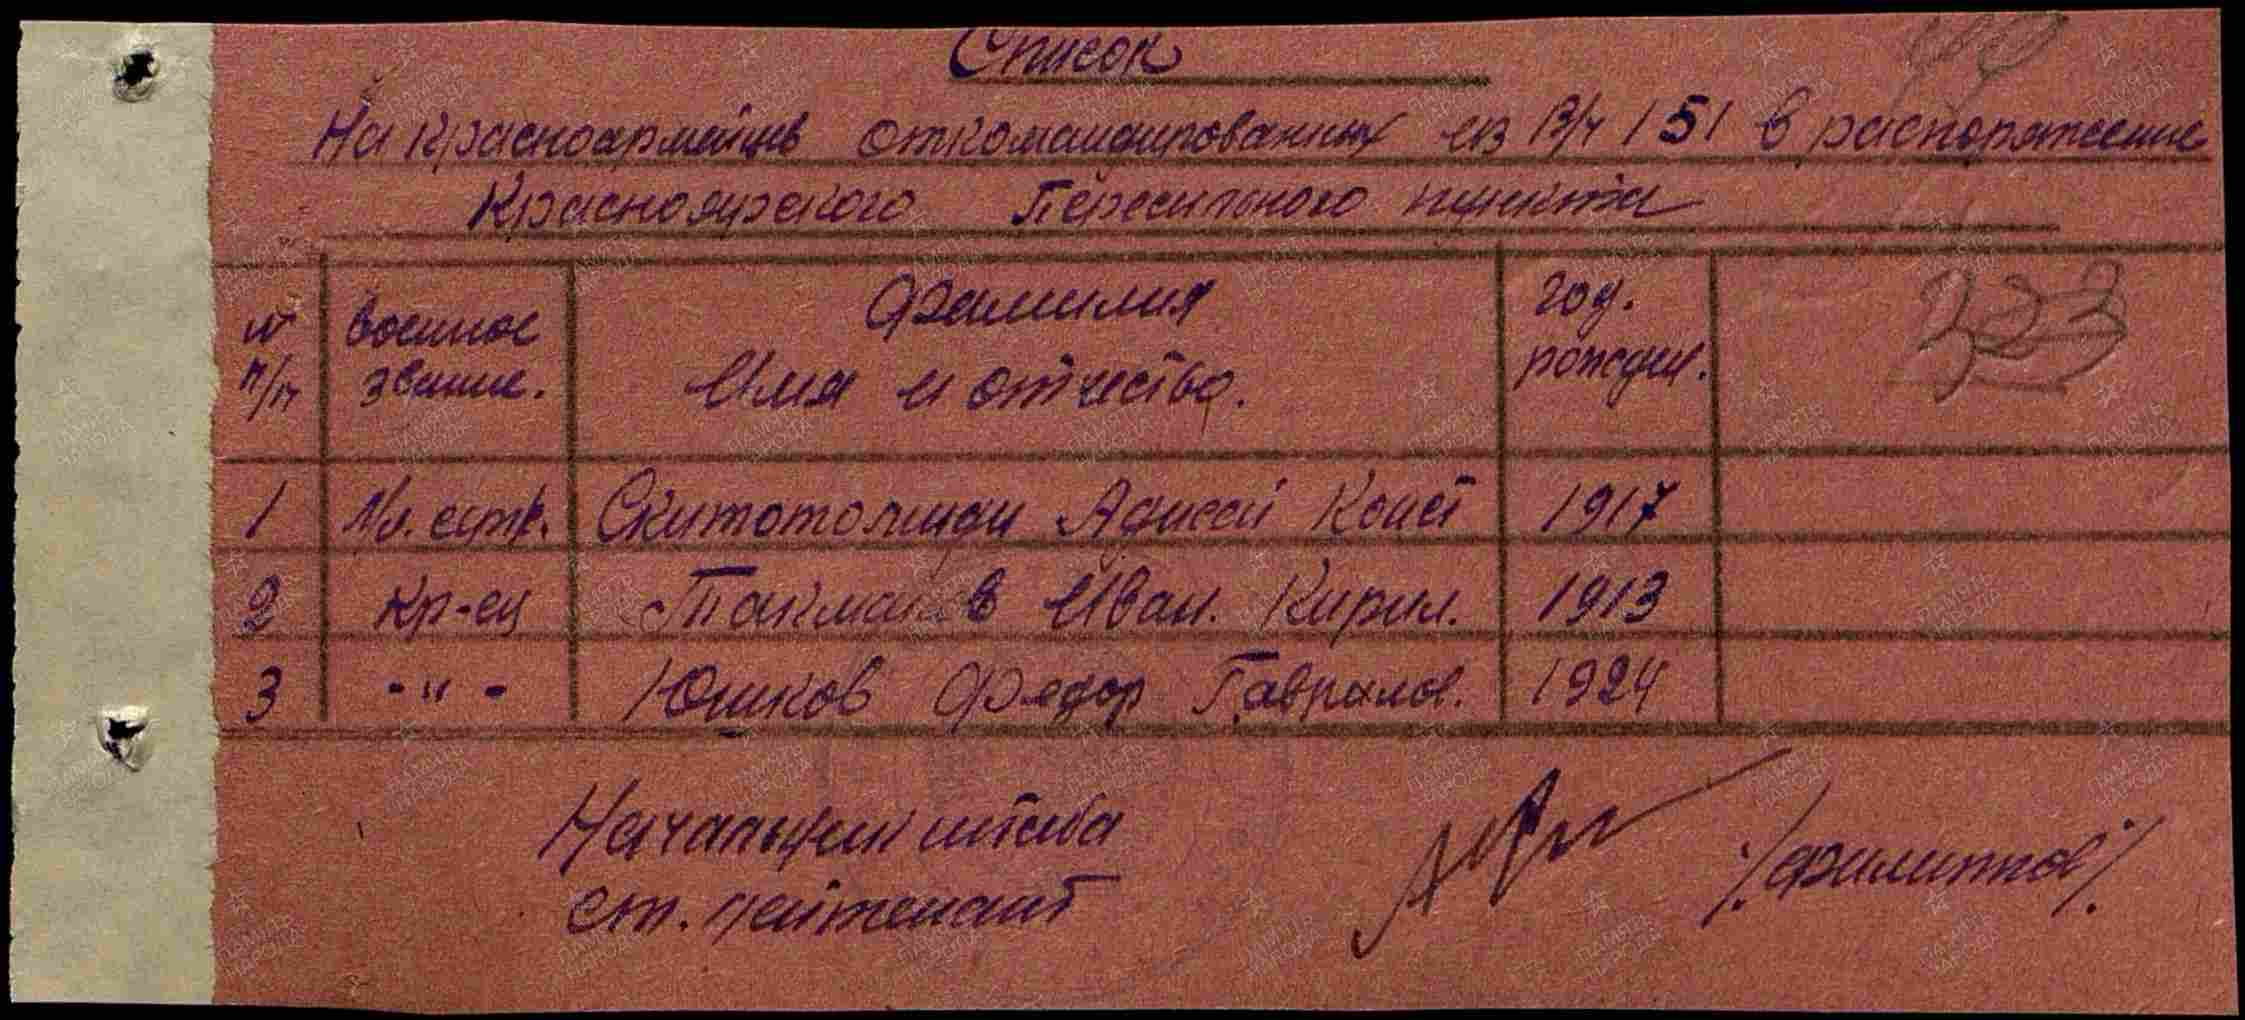 Список
На красноармейцев откомандированных из В/ч 151 в распоряжение
Красноярского Пересыльного пункта
№ п/п | Военное звание. | Фамилия Имя и отчество. | год. рожден.
1 | Мл. сержт. | Адисей Конст | 1917
2 | Кр-ец | Токмаков Иван. Кирил. | 1913
3 | -"- | Юшков Федор Гаврилов. | 1924
323
Начальник штаба
ст. лейтенант /Филиппов/
ПАМЯТЬ НАРОДА